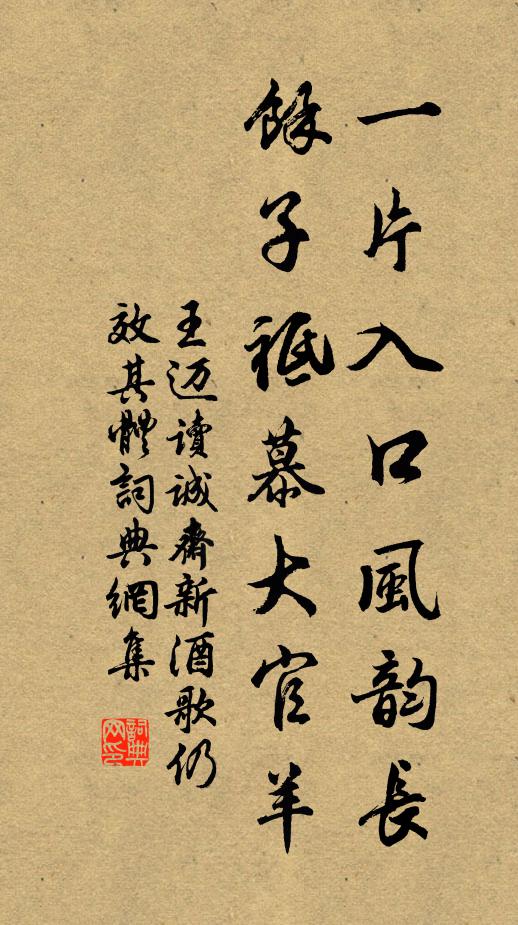 一片入口風韵長
餘子祗慕大官羊
王迈讀誠齋新酒歌仍
效其體詞典網集
詞典网印